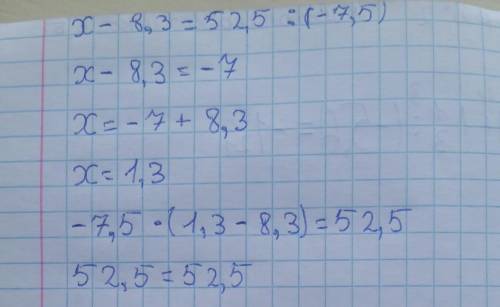 x - 8,3 = 52,5 : (-7,5)
x - 8,3 = -7
x = -7 + 8,3
x = 1,3
-7,5 · (1,3 - 8,3) = 52,5
52,5 = 52,5